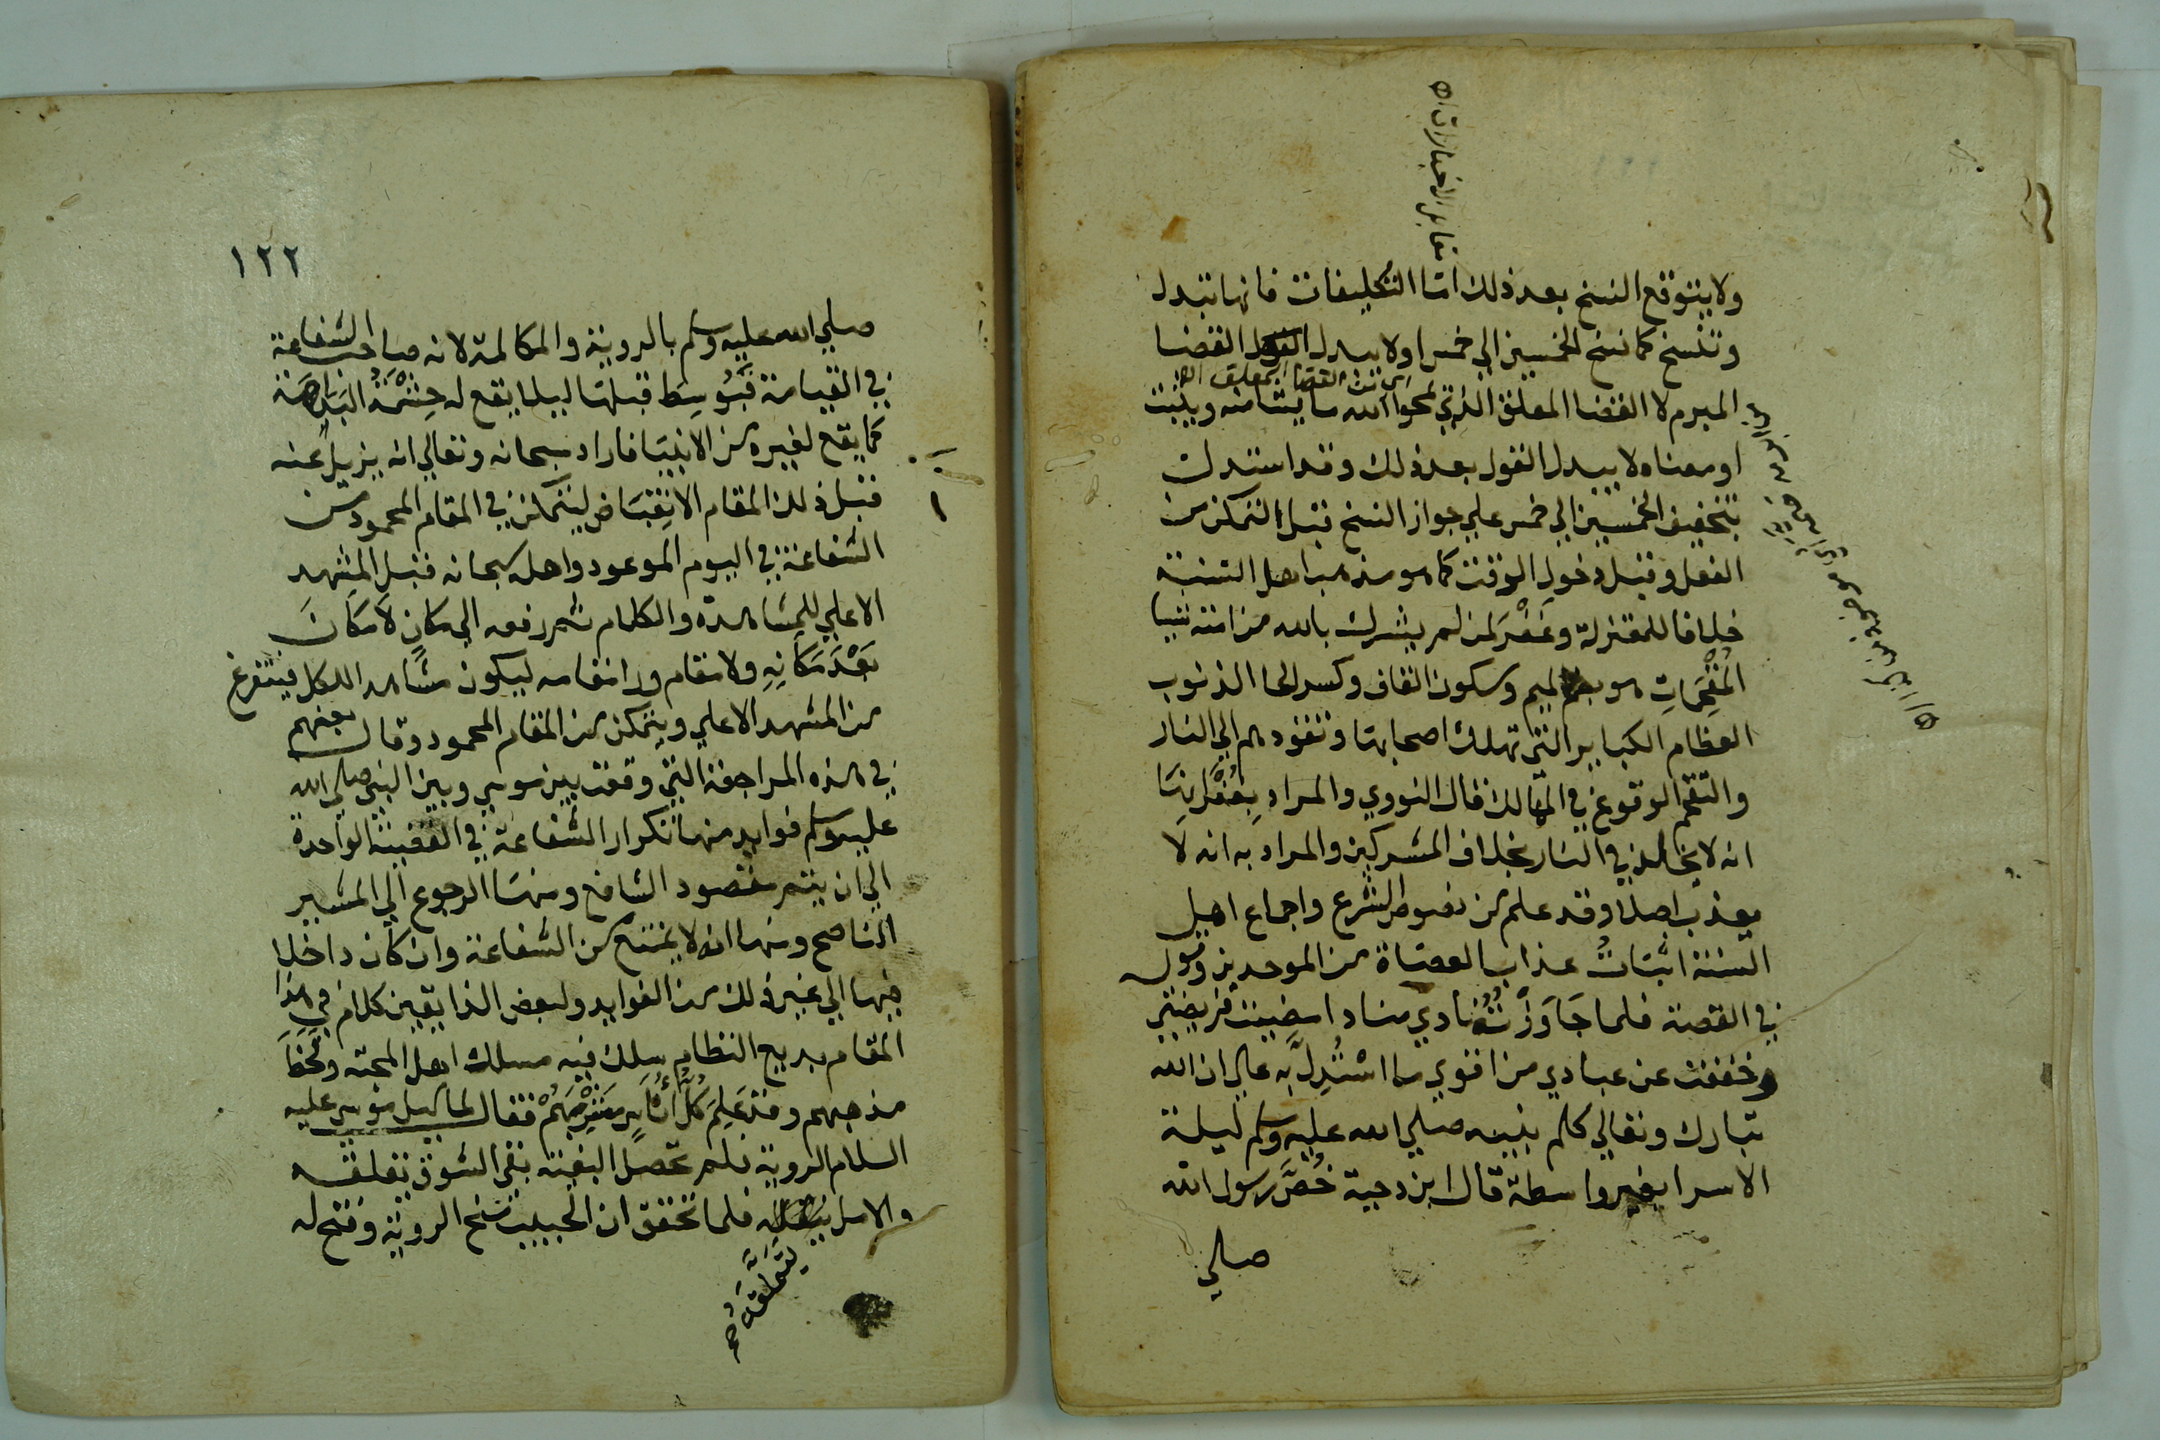 ولا يتوقع النسخ بعد ذلك اما التكليفات فانها تتبدل
وتنسخ كما نسخ الخمسين الي خمس اولا يبدل القضا
المبرم لا القضا المعلق الذي يمحو الله ما يشا منه ويثبت
او معناه لا يبدل القول بعد ذلك وقد استدل
بتخفيف الخمسين الي خمس علي جواز النسخ قبل التمكن من
الفعل وقبل دخول الوقت كما هو مذهب اهل السنة
خلافا للمعتزلة وغفر لمن لم يشرك بالله من امته شيا
المقحمات هو بضم الميم وسكون القاف وكسر الحا الذنوب
العظام الكباير التي تهلك اصحابها وتقودهم الي النار
والتقحم الوقوع في المهالك قال النووي والمراد بغفرانها
انه لا يخلد في النار بخلاف المشركين والمراد به انه لا
يعذب اصلا وقد علم من نصوص الشرع واجماع اهل
السنة اثبات عذاب العصاة من الموحدين وقوله
في القصة فلما جاوزت نادي مناد امضيت فريضتي
وخففت عن عبادي من اقوي ما استدل به علي ان الله
تبارك وتعالي كلم نبيه صلي الله عليه وسلم ليلة
الاسرا بغير واسطة قال ابن دحية خص رسول الله
صلي
١٢٢
صلي الله عليه وسلم بالروية والمكالمة لانه صاحب الشفاعة
في القيامة قبلها ليلا يقع له حشمة البداهة
كما يقع لغيره من الانبيا فاراد سبحانه وتعالي ان يزيل عنه
قبل ذلك المقام الانقباض ليتمكن في المقام المحمود من
الشفاعة في اليوم الموعود واهله سبحانه قبل المشهد
الاعلي للمشاهدة والكلام ثم رفعه الي مكان لا مكان
بعد مكانه ولا مقام ورا مقامه ليكون مشاهد الكل فيتفرغ
من المشهد الاعلي ويتمكن من المقام المحمود وقال بعضهم
في هذه المراجعة التي وقعت بين موسي وبين النبي صلي الله
عليه وسلم فوايد منها تكرار الشفاعة في القضية الواحدة
الي ان يتم مقصود الشافع ومنها الرجوع الي المشير
الناصح ومنها انه لا يمتنع من الشفاعة وان كان داخلا
فيها الي غير ذلك من الفوايد ولبعض الذايقين كلام في هذا
المقام بديع النظام سلك فيه مسلك اهل المحبة ونحا
مذهبهم وقد علم كل اناس مشربهم فقال لما سيل موسي عليه
السلام الروية فلم تحصل البغية بقي الشوق يقلقه
والامل يعلله فلما تحقق ان الحبيب منح الروية وفتح له